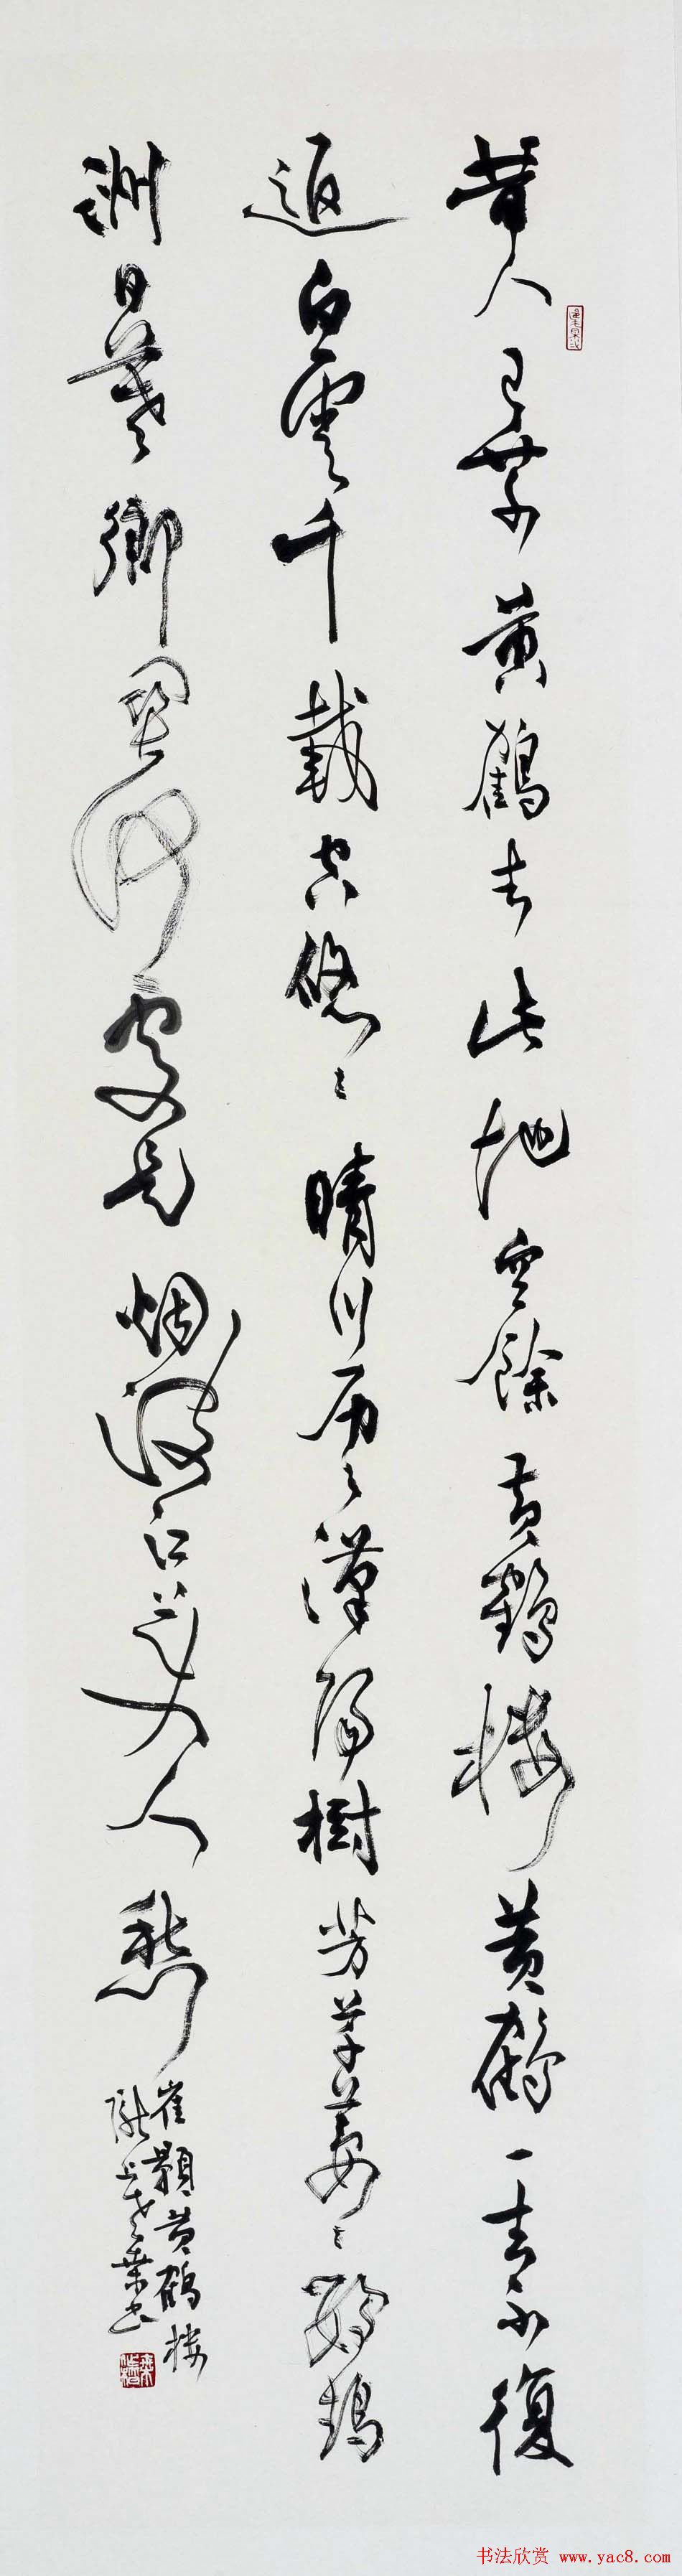 昔人已乘黄鶴去此地空餘黄鶴楼黄鶴一去不復
返白雲千載空悠々晴川历々漢陽樹芳草萋々鸚鵡
洲日暮鄉關何處是烟波江上使人愁
崔顥黄鶴楼
书法欣赏 www.yac8.com